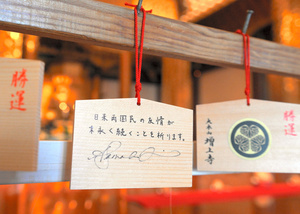 勝運
日米両国民の友情が
末永く続くことを祈ります。
勝運
大本山
増上寺